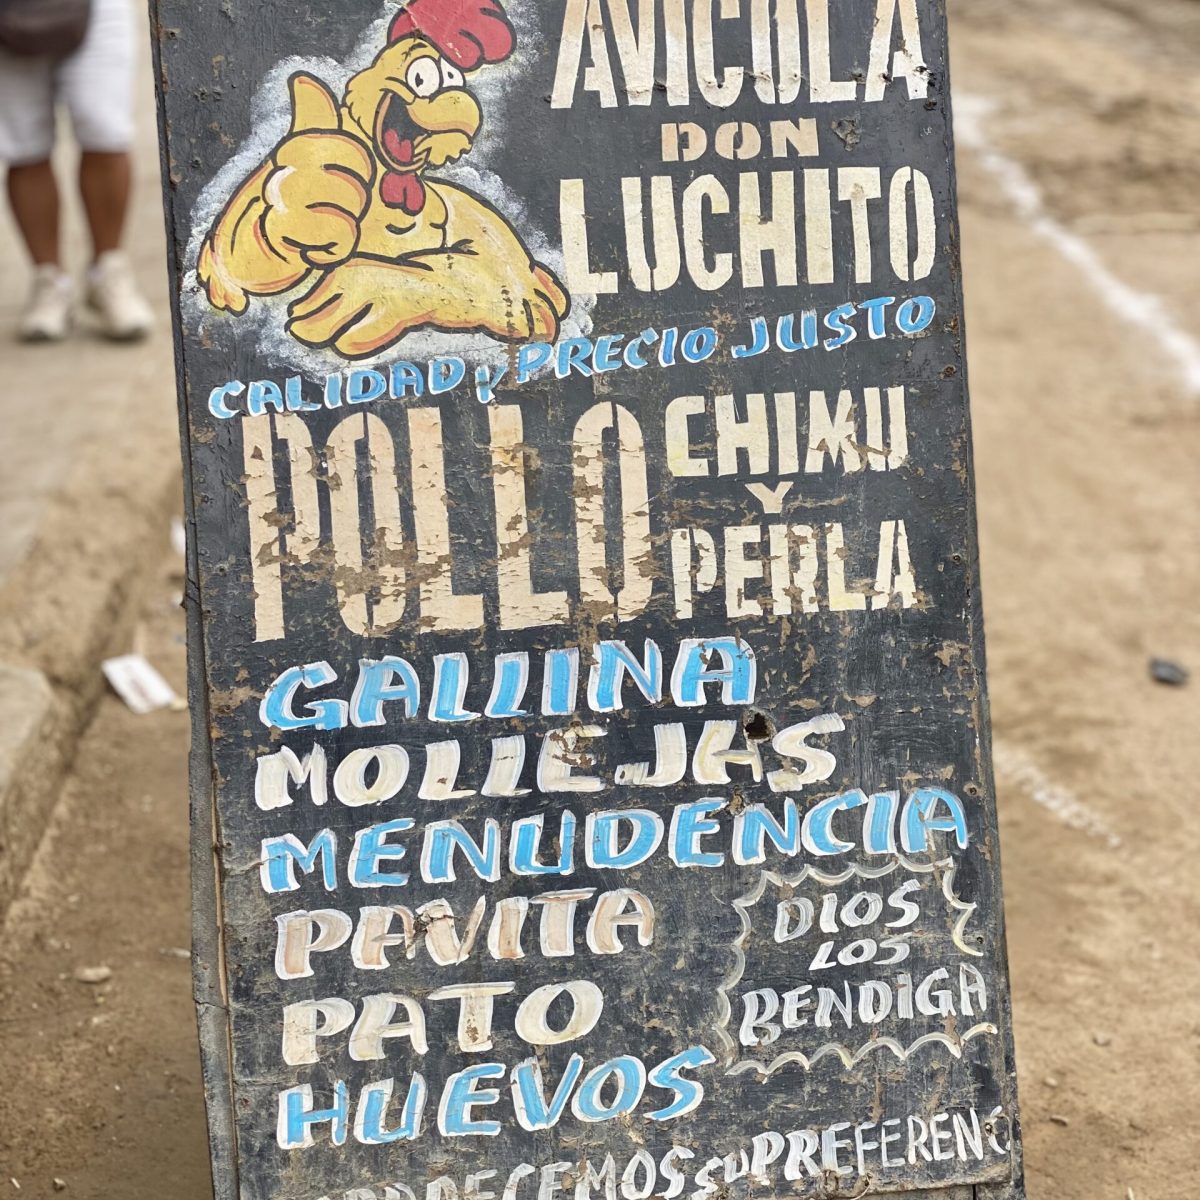 AVICOLA
DON
LUCHITO
CALIDAD Y PRECIO JUSTO
POLLO CHIMU
Y
PERLA
GALLINA
MOLLEJAS
MENUDENCIA
PAVITA
PATO
HUEVOS
DIOS
LOS
BENDIGA
SU PREFERENC